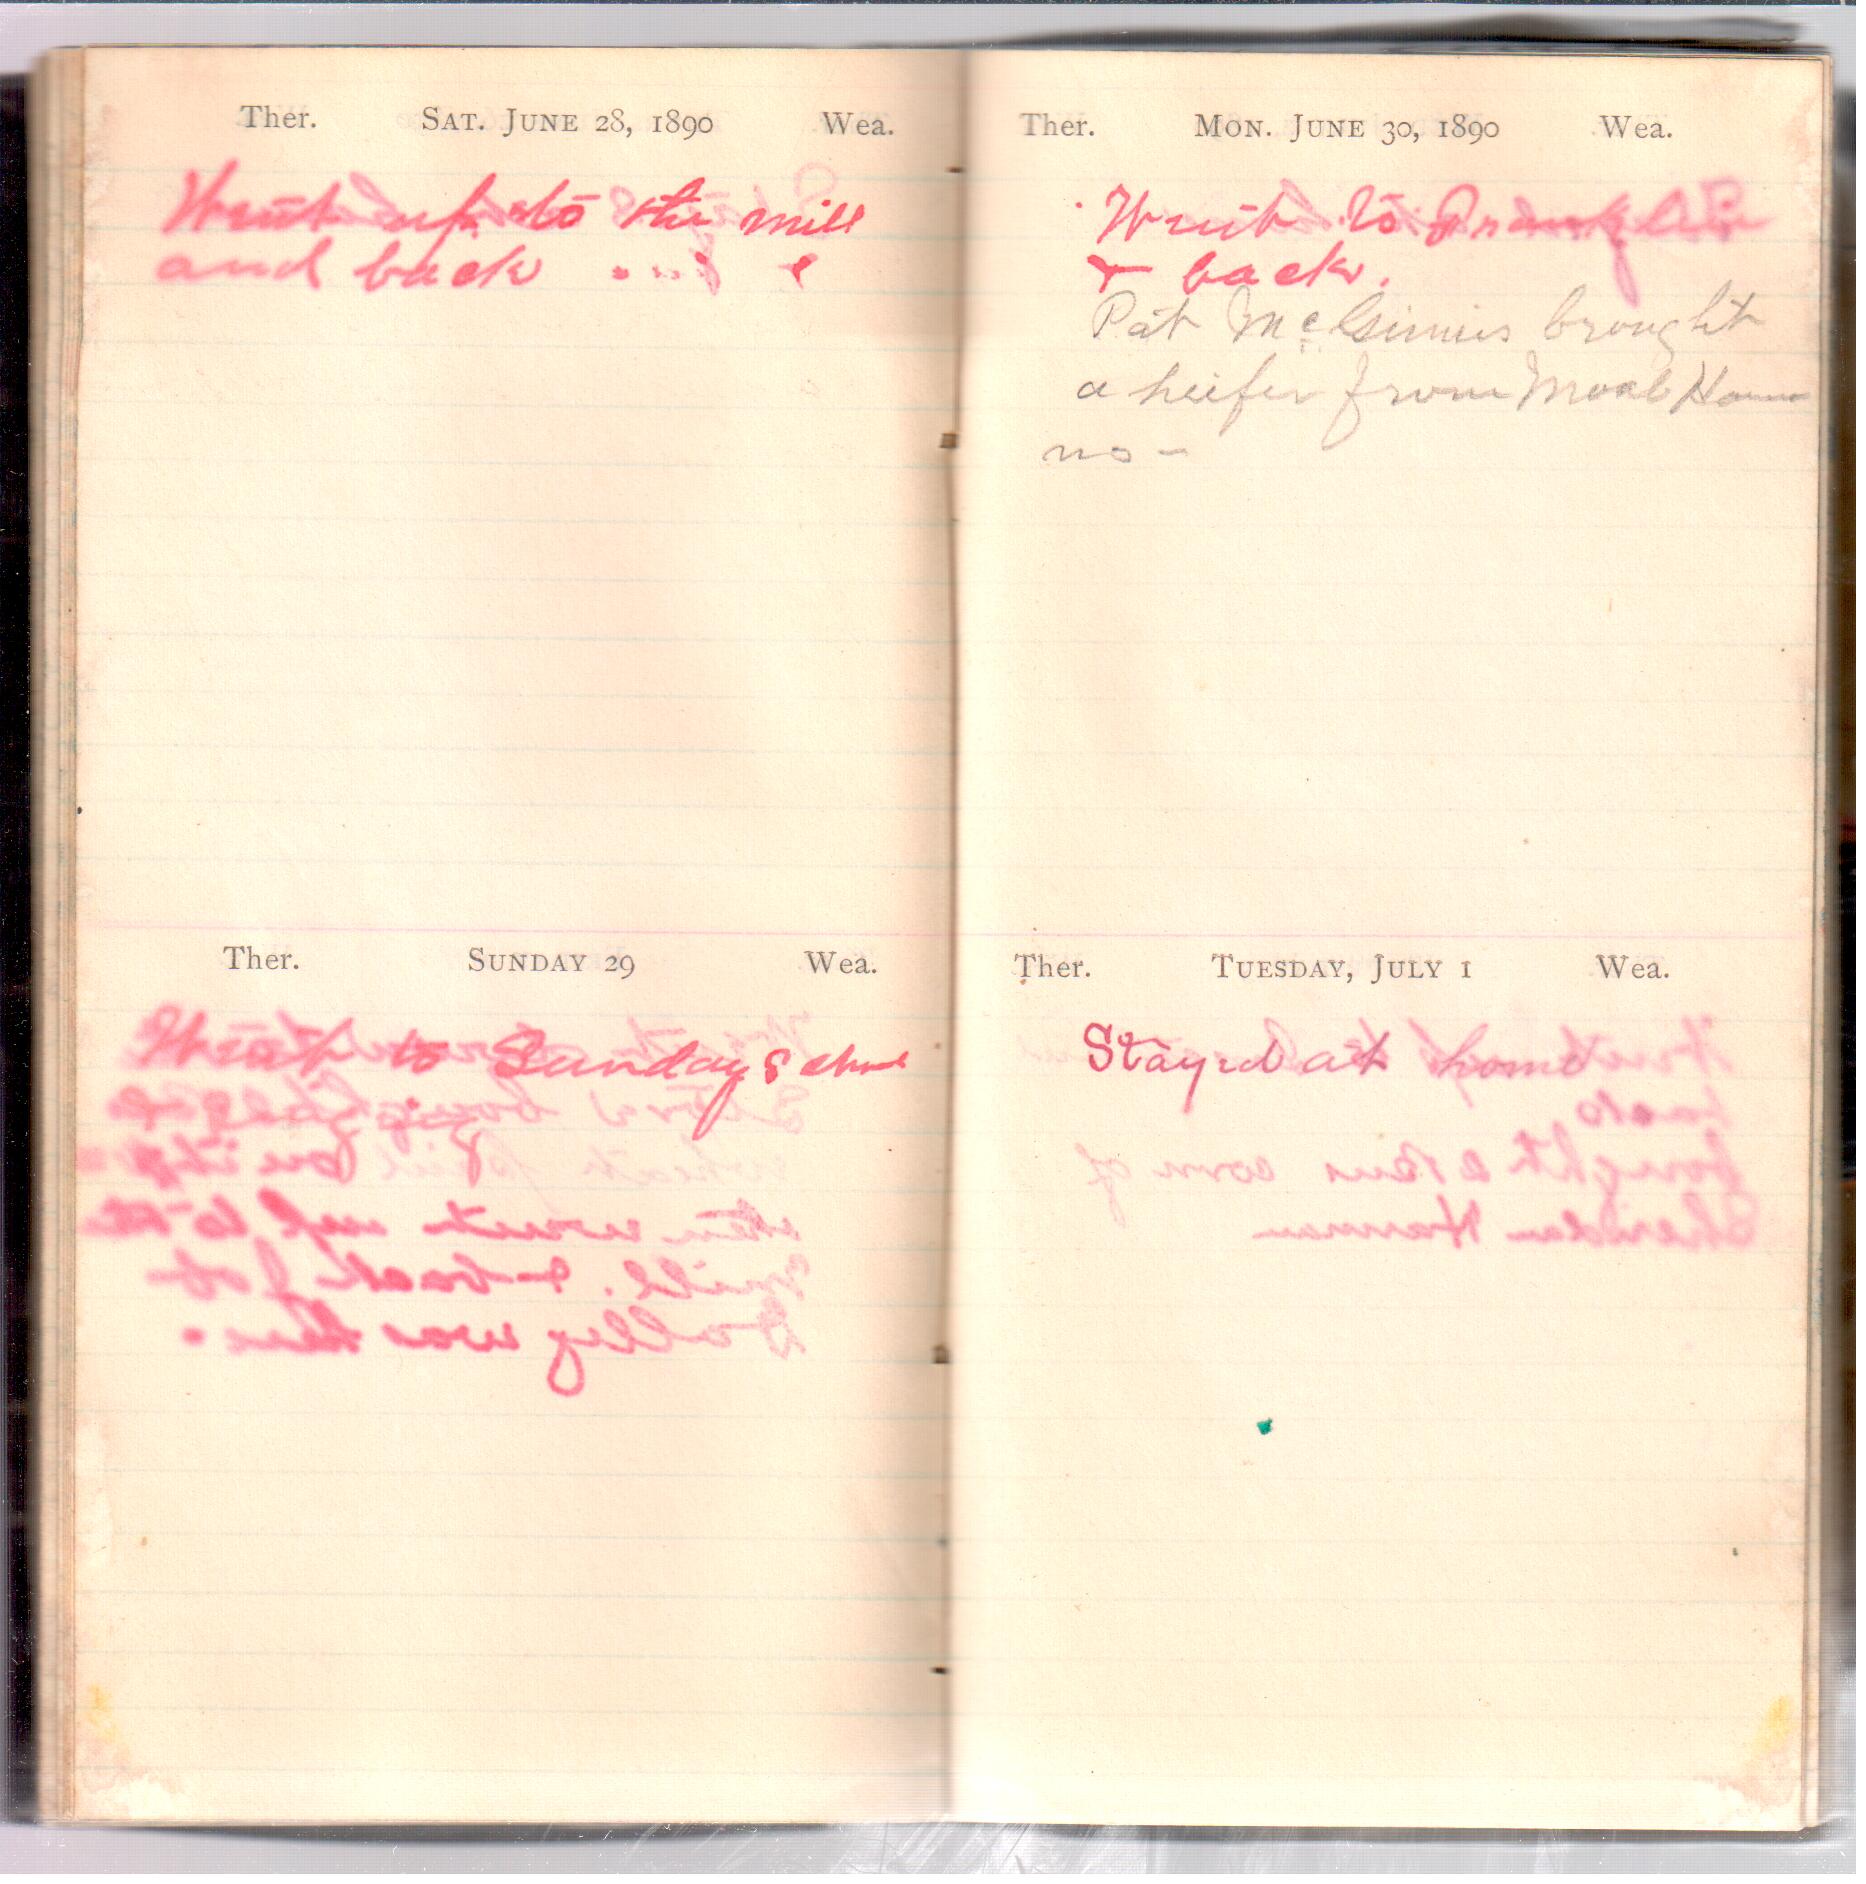 Ther. SAT. JUNE 28, 1890 Wea.
Went up to the mill
and back
Ther. SUNDAY 29 Wea.
Went to Sunday School
Ther. MON. JUNE 30, 1890 Wea.
Went to Franklin
+ back.
Pat McGinnis brought
a heifer from
no -
Ther. TUESDAY, JULY 1 Wea.
Stayed at home